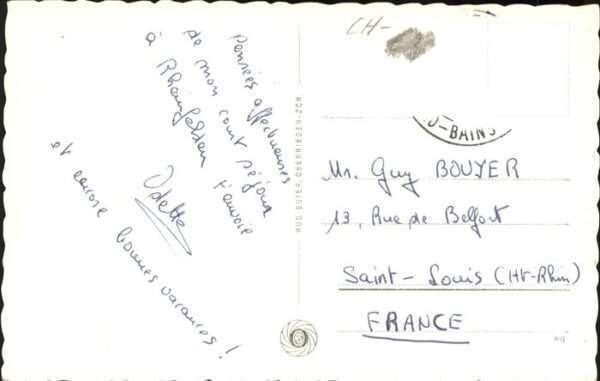 Pensées affectueuses
de mon court séjour
à Rheinfelden t'envoie
Odette
et encore bonnes vacances !
CH-
RUD. SUTER, OBERRIEDEN-ZCH.
-BAINS
Mr. Guy BOUYER
13, Rue de Belfort
Saint-Louis (Ht-Rhin)
FRANCE